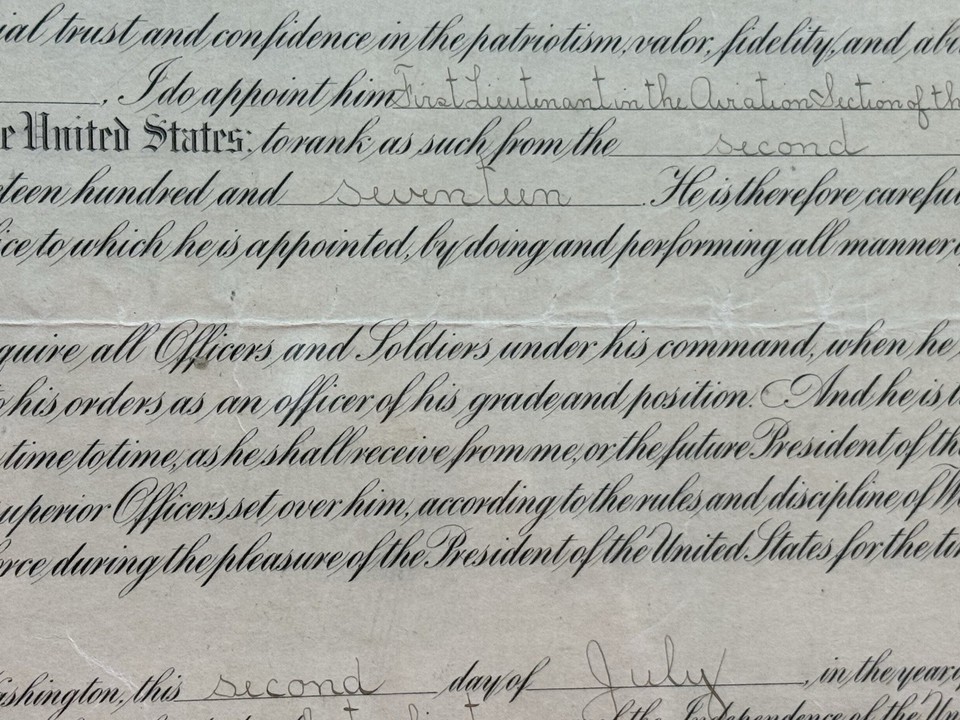 ial trust and confidence in the patriotism, valor, fidelity, and abi
, I do appoint him First Lieutenant in the Aviation Section of th
e United States: to rank as such from the second
teen hundred and seventeen. He is therefore carefu
ice to which he is appointed, by doing and performing all manner o
quire all Officers and Soldiers under his command, when he
o his orders as an officer of his grade and position. And he is t
time to time, as he shall receive from me, or the future President of th
uperior Officers set over him, according to the rules and discipline of W
orce during the pleasure of the President of the United States for the ti
ashington, this second day of July, in the year o
of the Independence of the Un